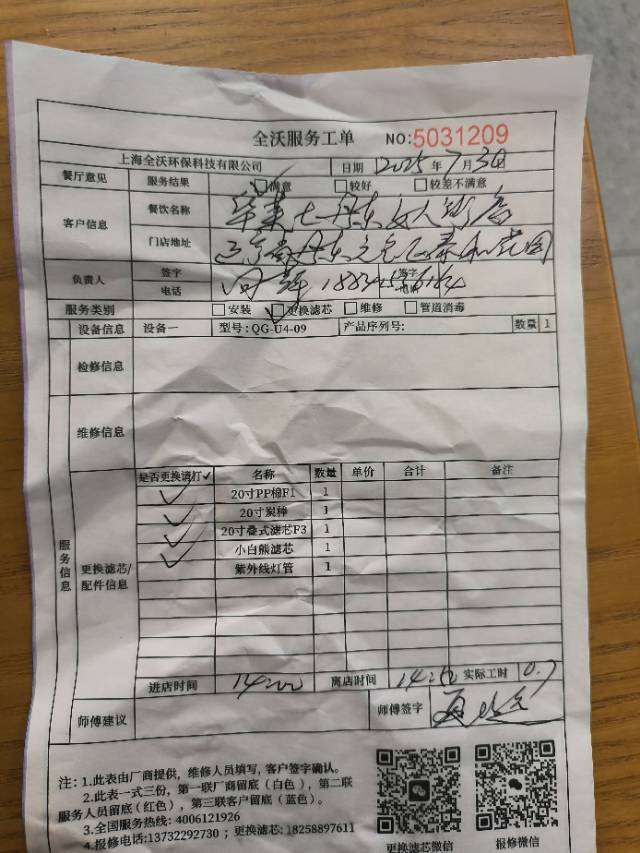 全沃服务工单 NO:5031209
上海全沃环保科技有限公司 日期 2025年7月3日
餐厅意见 服务结果 满意 较好 较差不满意
客户信息 餐饮名称
门店地址
负责人 签字 签字
电话 电话
服务类别 安装 更换滤芯 维修 管道消毒
设备信息 设备一 型号:QG-U4-09 产品序列号: 数量 1
检修信息
维修信息
服务信息
更换滤芯/配件信息
是否更换请打✓ 名称 数量 单价 合计 备注
✓ 20寸PP棉F1 1
✓ 20寸炭棒 1
✓ 20寸叠式滤芯F3 1
✓ 小白熊滤芯 1
紫外线灯管 1
进店时间 14:00 离店时间 实际工时 0.7
师傅建议 师傅签字
注: 1.此表由厂商提供, 维修人员填写, 客户签字确认。
2.此表一式三份, 第一联厂商留底 (白色) , 第二联
服务人员留底(红色) , 第三联客户留底 (蓝色) 。
3.全国服务热线: 4006121926
4.报修电话:13732292730 ; 更换滤芯: 18258897611
更换滤芯微信 报修微信